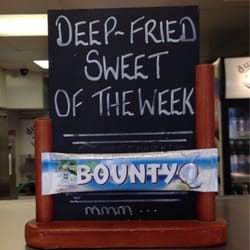 DEEP-FRIED
SWEET
OF THE WEEK
BOUNTY
mmm...